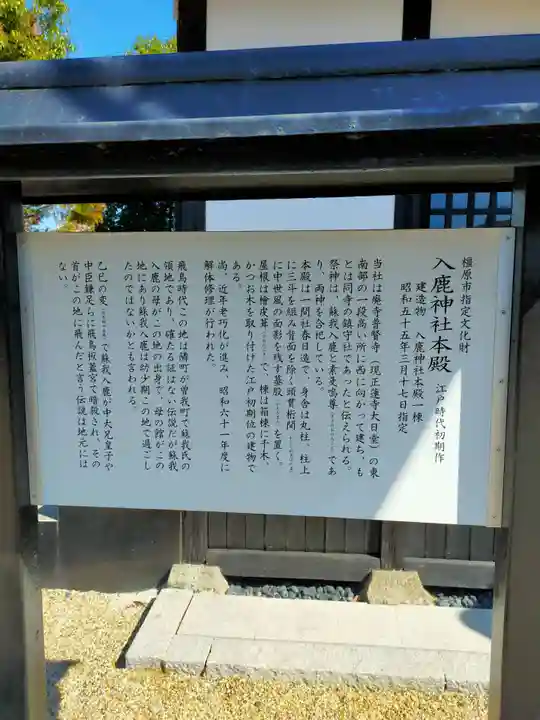 橿原市指定文化財
入鹿神社本殿 江戸時代初期作
建造物 入鹿神社本殿一棟
昭和五十五年三月十七日指定
当社は廃寺普賢寺(現正蓮寺大日堂)の東
南部の一段高い所に西に向かって建ち、も
とは同寺の鎮守社であったと伝えられる。
祭神は、蘇我入鹿と素戔嗚尊であ
り、両神を合祀している。
本殿は一間社春日造で、身舎は丸柱。柱上
に三斗を組み背面を除く頭貫桁間
に中世風の面影を残す蟇股を置く。
屋根は檜皮葺で、棟は箱棟に千木、
かつお木を取り付けた江戸初期位の建物で
ある。
尚、近年老朽化が進み、昭和六十一年度に
解体修理が行われた。
飛鳥時代この地は隣町が曽我町で蘇我氏の
領地であり、確たる証はない伝説だが蘇我
入鹿の母がこの地の出身で、母の館がこの
地にあり蘇我入鹿は幼少期この地で過ごし
たのではないかとも言われる。
乙巳の変で蘇我入鹿が中大兄皇子や
中臣鎌足らに飛鳥板蓋宮で暗殺され、その
首がこの地に飛んだと言う伝説は地元には
ない。